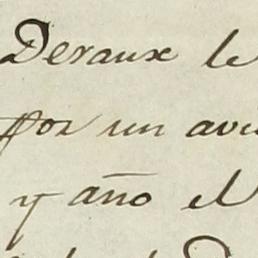 Deraux le
por un avi
y año el